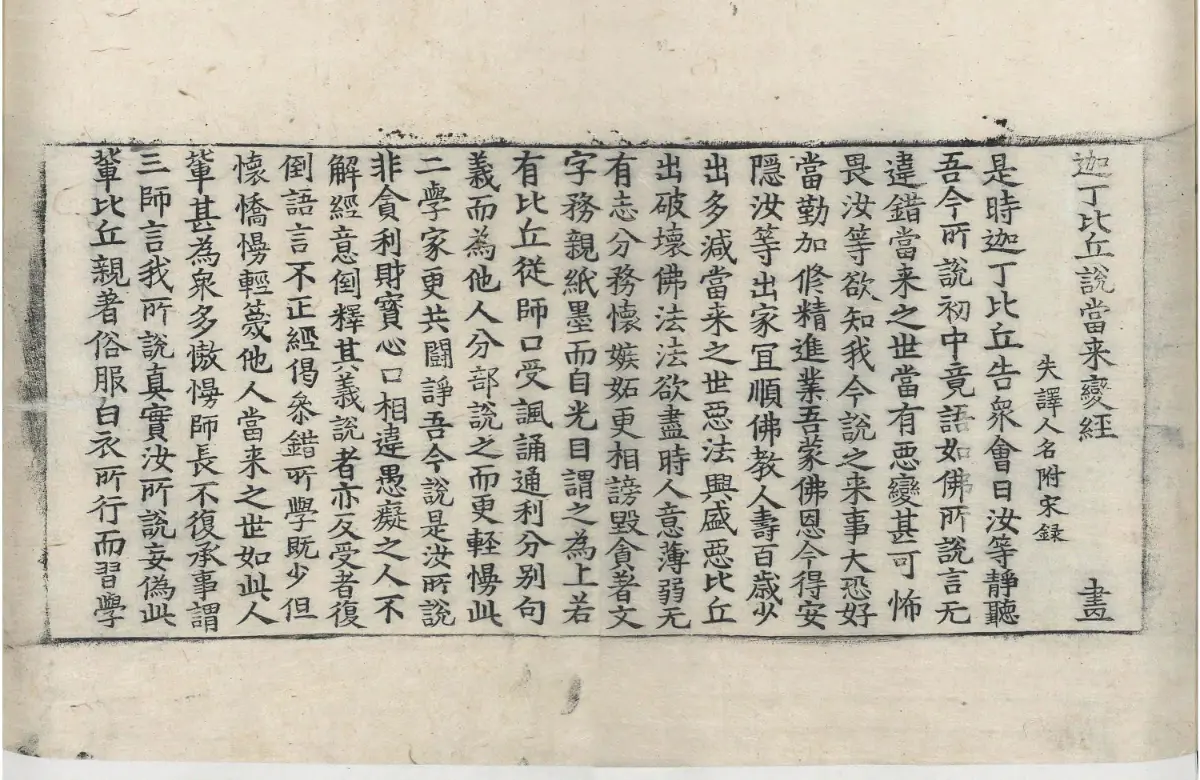 迦丁比丘說當来變経 晝
失譯人名附宋録
是時迦丁比丘告衆會曰汝等靜聽
吾今所說初中竟語如佛所說言无
違錯當来之世當有惡變甚可怖
畏汝等欲知我今說之来事大恐好
當勤加修精進業吾蒙佛恩今得安
隱汝等出家冝順佛教人壽百歲少
出多減當来之世惡法興盛惡比丘
出破壞佛法法欲盡時人意薄弱无
有志分務懷嫉妬更相謗毀貪著文
字務親紙墨而自光目謂之為上若
有比丘從師口受諷誦通利分別句
義而為他人分部說之而更輕慢此
二學家更共鬪諍吾今說是汝所說
非貪利財寶心口相違愚癡之人不
解経意倒釋其義說者亦久受者復
倒語言不正經偈叅錯所學既少但
懷憍慢輕蔑他人當来之世如此人
輩甚為衆多慠慢師長不復承事謂
三師言我所說真實汝所說妄偽此
輩比丘親著俗服白衣所行而習學